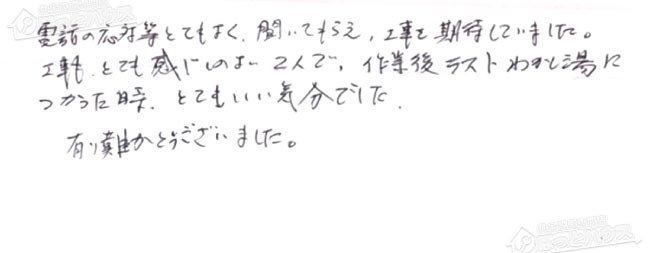 電話の応対等とてもよく、聞いてもらえ、工事を期待していました。
工事も、とても感じのよい2人で、作業後テストわかし湯に
つかった時、とてもいい気分でした。
有り難とうございました。